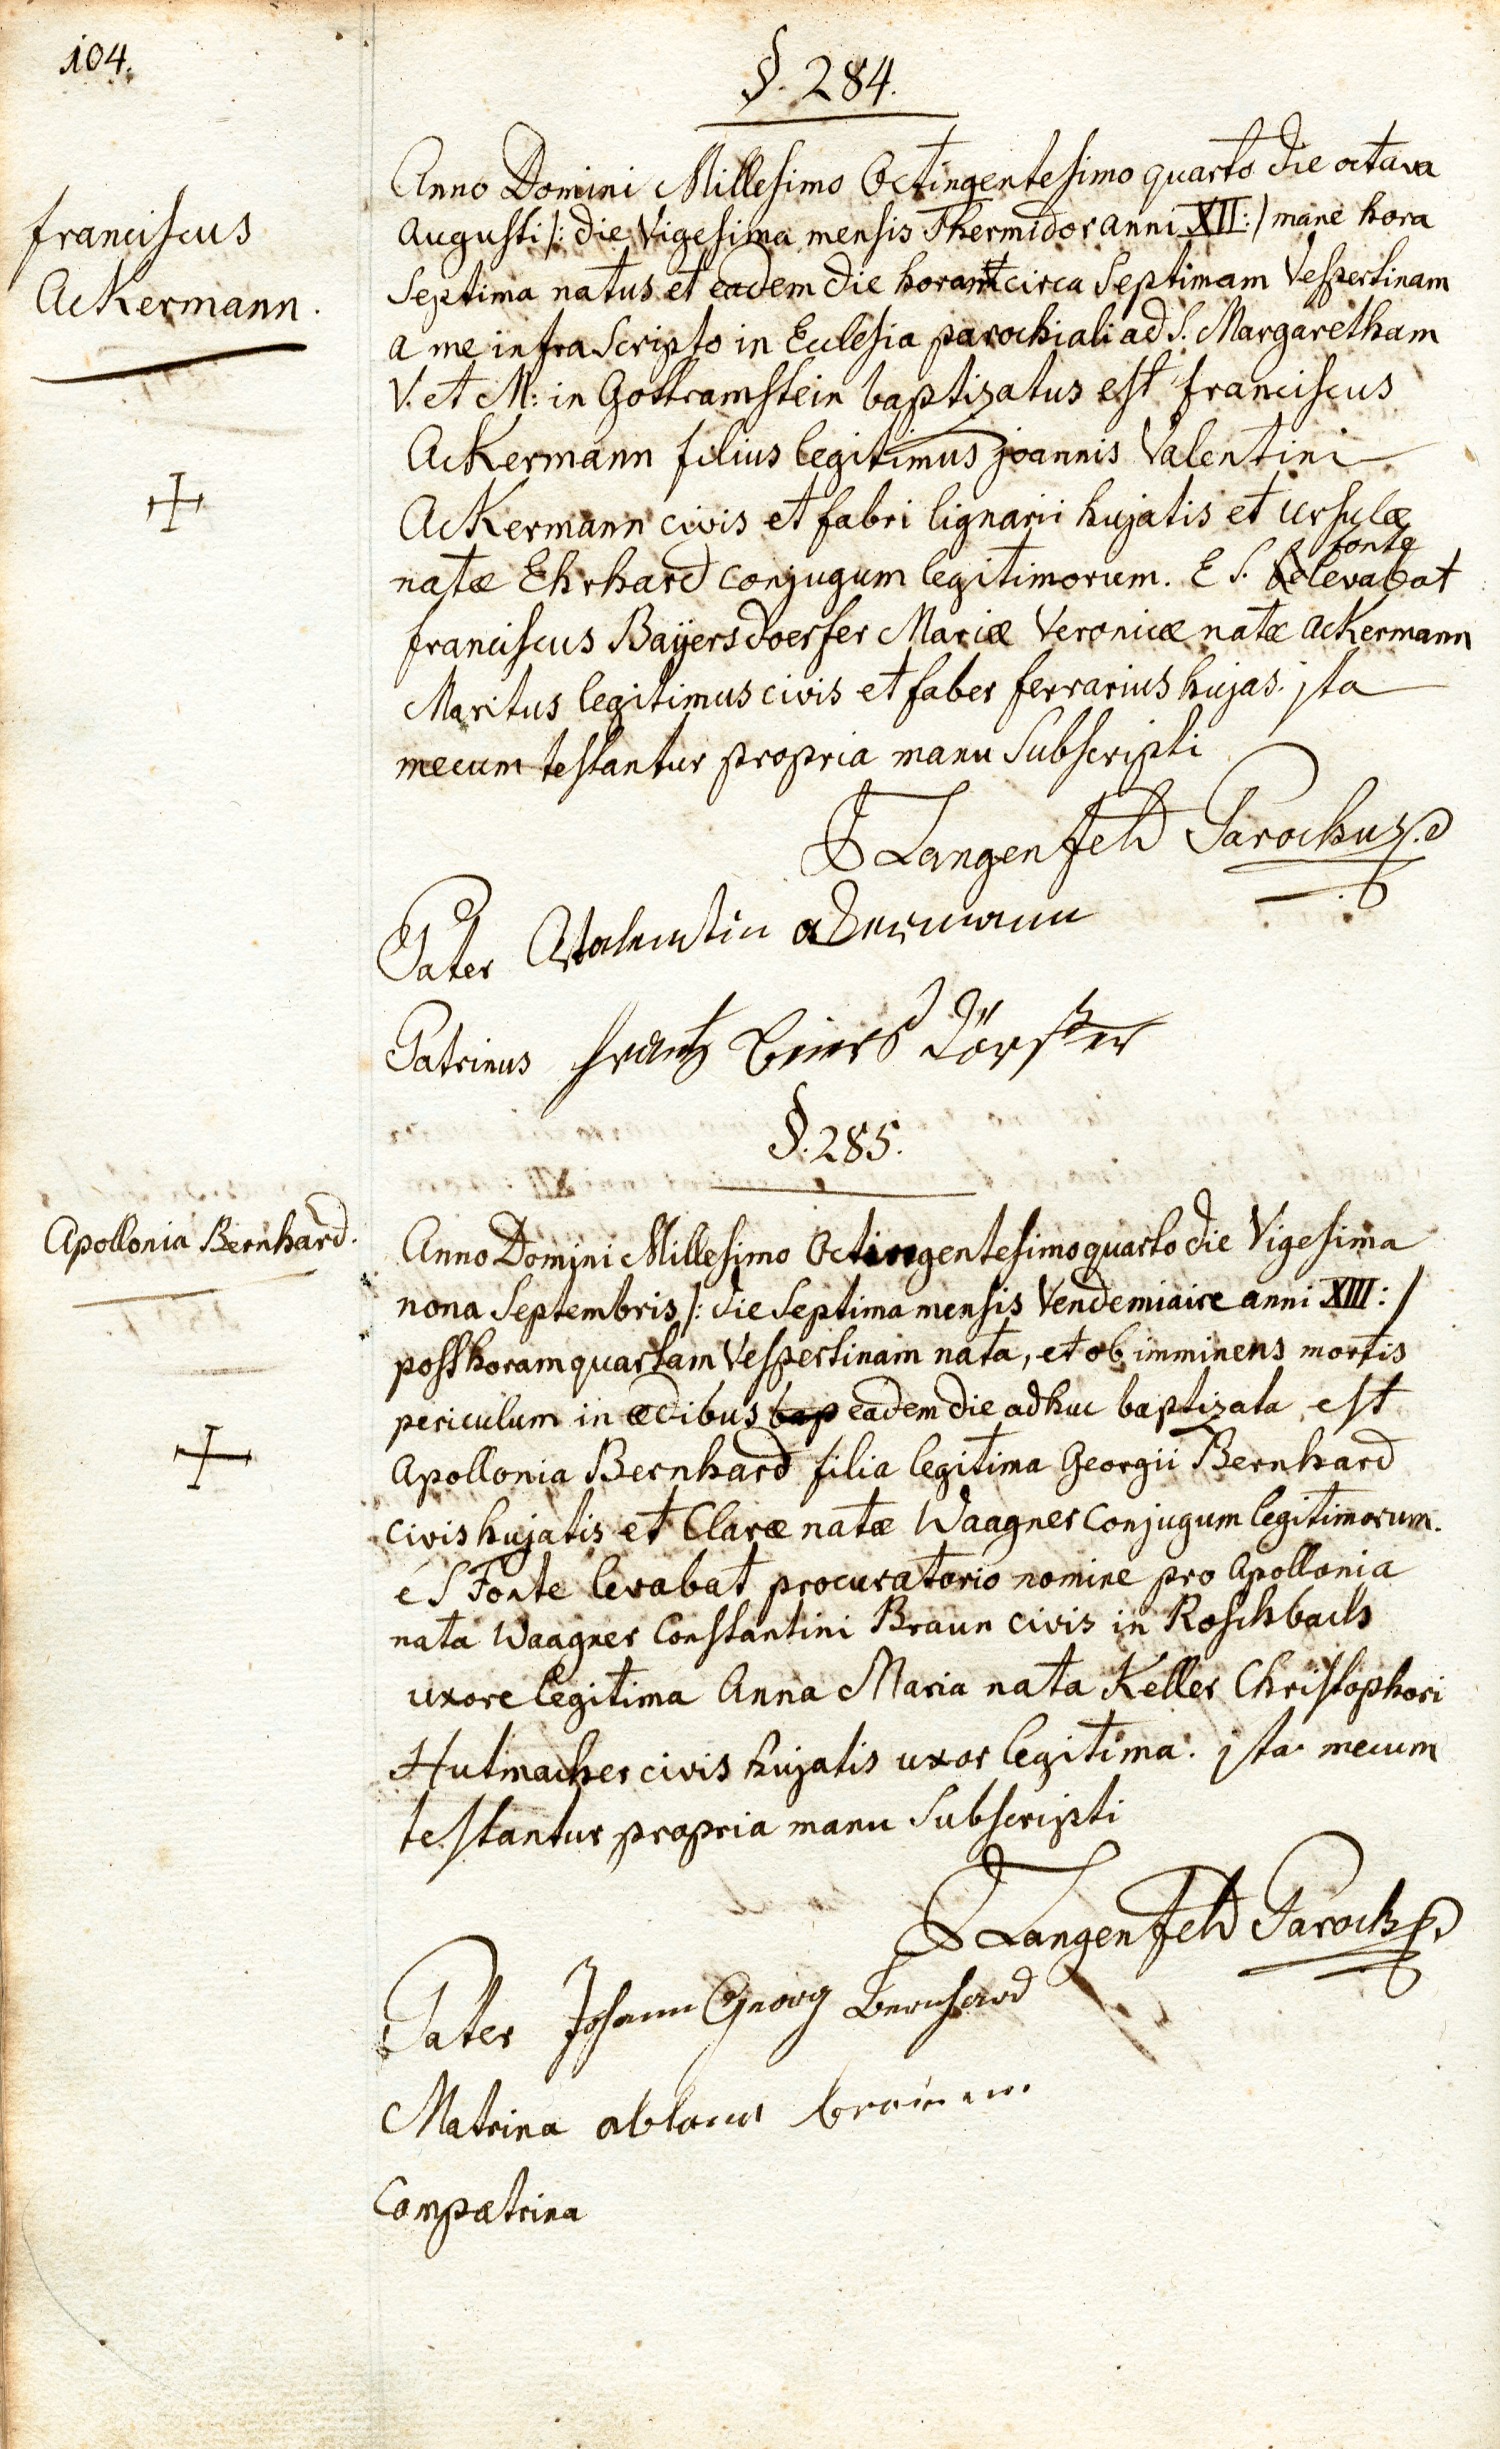 104.
§. 284.
franciscus
Ackermann.
Anno Domini Millesimo Octingentesimo quarto die octava
Augusti /: die Vigesima mensis Thermidor anni XII: / mane hora
Septima natus et eadem die horam circa Septimam Vespertinam
a me infra Scripto in Ecclesia parochiali ad S. Margaretham
V. et M: in Gottramstein baptizatus est franciscus
Ackermann filius legitimus joannis Valentini
Ackermann civis et fabri lignarii hujatis et Ursulæ
natæ Ehrhard conjugum legitimorum. E S. fonte levabat
franciscus Bayersdoerfer Mariæ Veronicæ natæ Ackermann
Maritus legitimus civis et faber ferrarius hujas. jta
mecum testantur propria manu Subscripti
J Langenfeld Parochus
Pater Valentin ackermann
Patrinus frantz Beiersdörffer
§. 285.
Apollonia Bernhard.
Anno Domini Millesimo Octingentesimo quarto die Vigesima
nona Septembris /: die Septima mensis Vendemiaire anni XIII: /
post horam quartam Vespertinam nata, et ob imminens mortis
periculum in ædibus bap eadem die adhuc baptizata est
Apollonia Bernhard filia legitima Georgii Bernhard
civis hujatis et Claræ natæ Waagner Conjugum legitimorum.
é S Fonte levabat procuratorio nomine pro Apollonia
nata Waagner Constantini Braun civis in Roschbach
uxore legitima Anna Maria nata Keller Christophori
Hutmacher civis hujatis uxor legitima. jta mecum
testantur propria manu Subscripti
J Langenfeld Paroch
Pater Johann Georg Bernhard
Matrina
Compatrina